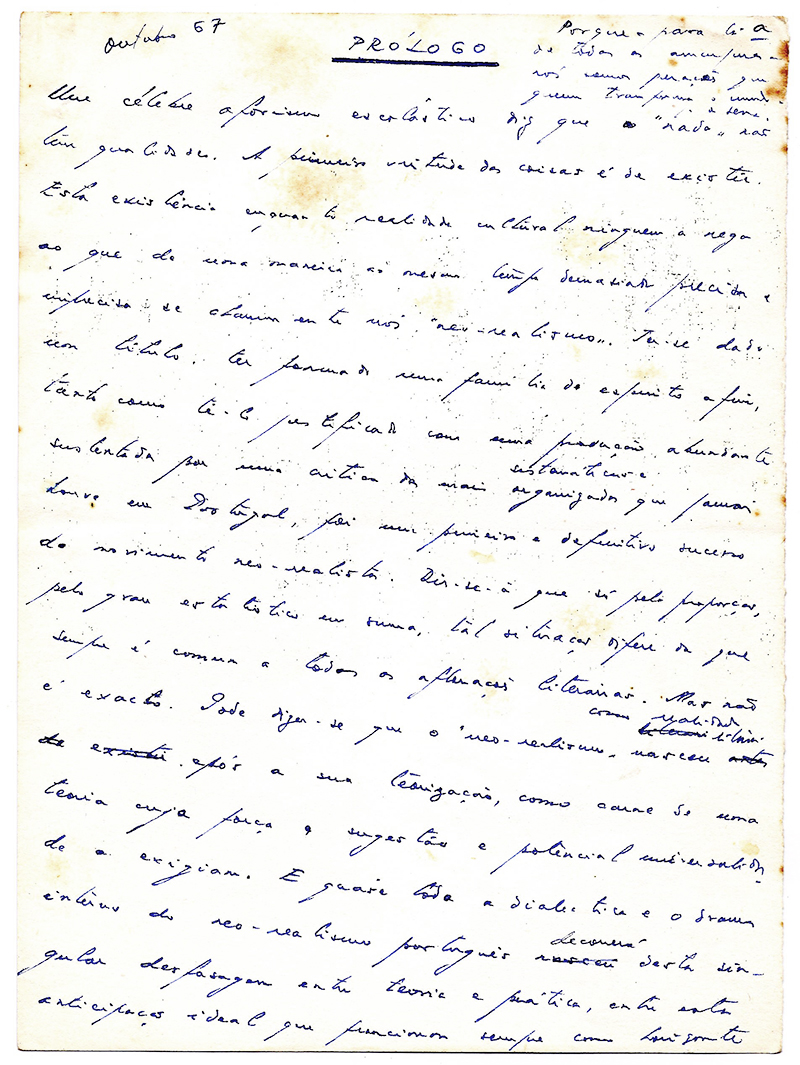 Outubro 67
PRÓLOGO
Porque para lá
de todas as
nós somos gerações que
quem transforma o mundo
e serve.
Um célebre aforismo escolástico diz que o "nada" não
tem qualidades. A primeira virtude das coisas é de existir.
Esta existência enquanto realidade cultural ninguem a nega
ao que de uma maneira ao mesmo tempo demasiado precisa e
imprecisa se chamou entre nós "neo-realismo". Ter-se dado
um título, ter formado uma família de espírito afim,
tanto como tê-lo justificado com uma produção abundante
sustentada por uma critica das mais sistemáticas e
organizadas que jamais
houve em Portugal, foi um primeiro e definitivo sucesso
do movimento neo-realista. Dir-se-á que só pela proporção,
pelo grau estatístico em suma, tal situação difere da que
sempre é comum a todas as afirmações literárias. Mas não
é exacto. Pode dizer-se que o "neo-realismo" nasceu como realidade
após a sua teorização, como carne de uma
teoria cuja força e sugestão e potencial
de a exigiam. E quase toda a dialectica e o drama
interno do neo-realismo português decorrerá desta sin-
gular desfasagem entre teoria e prática, entre esta
anticipação ideal que funcionou sempre como horizonte